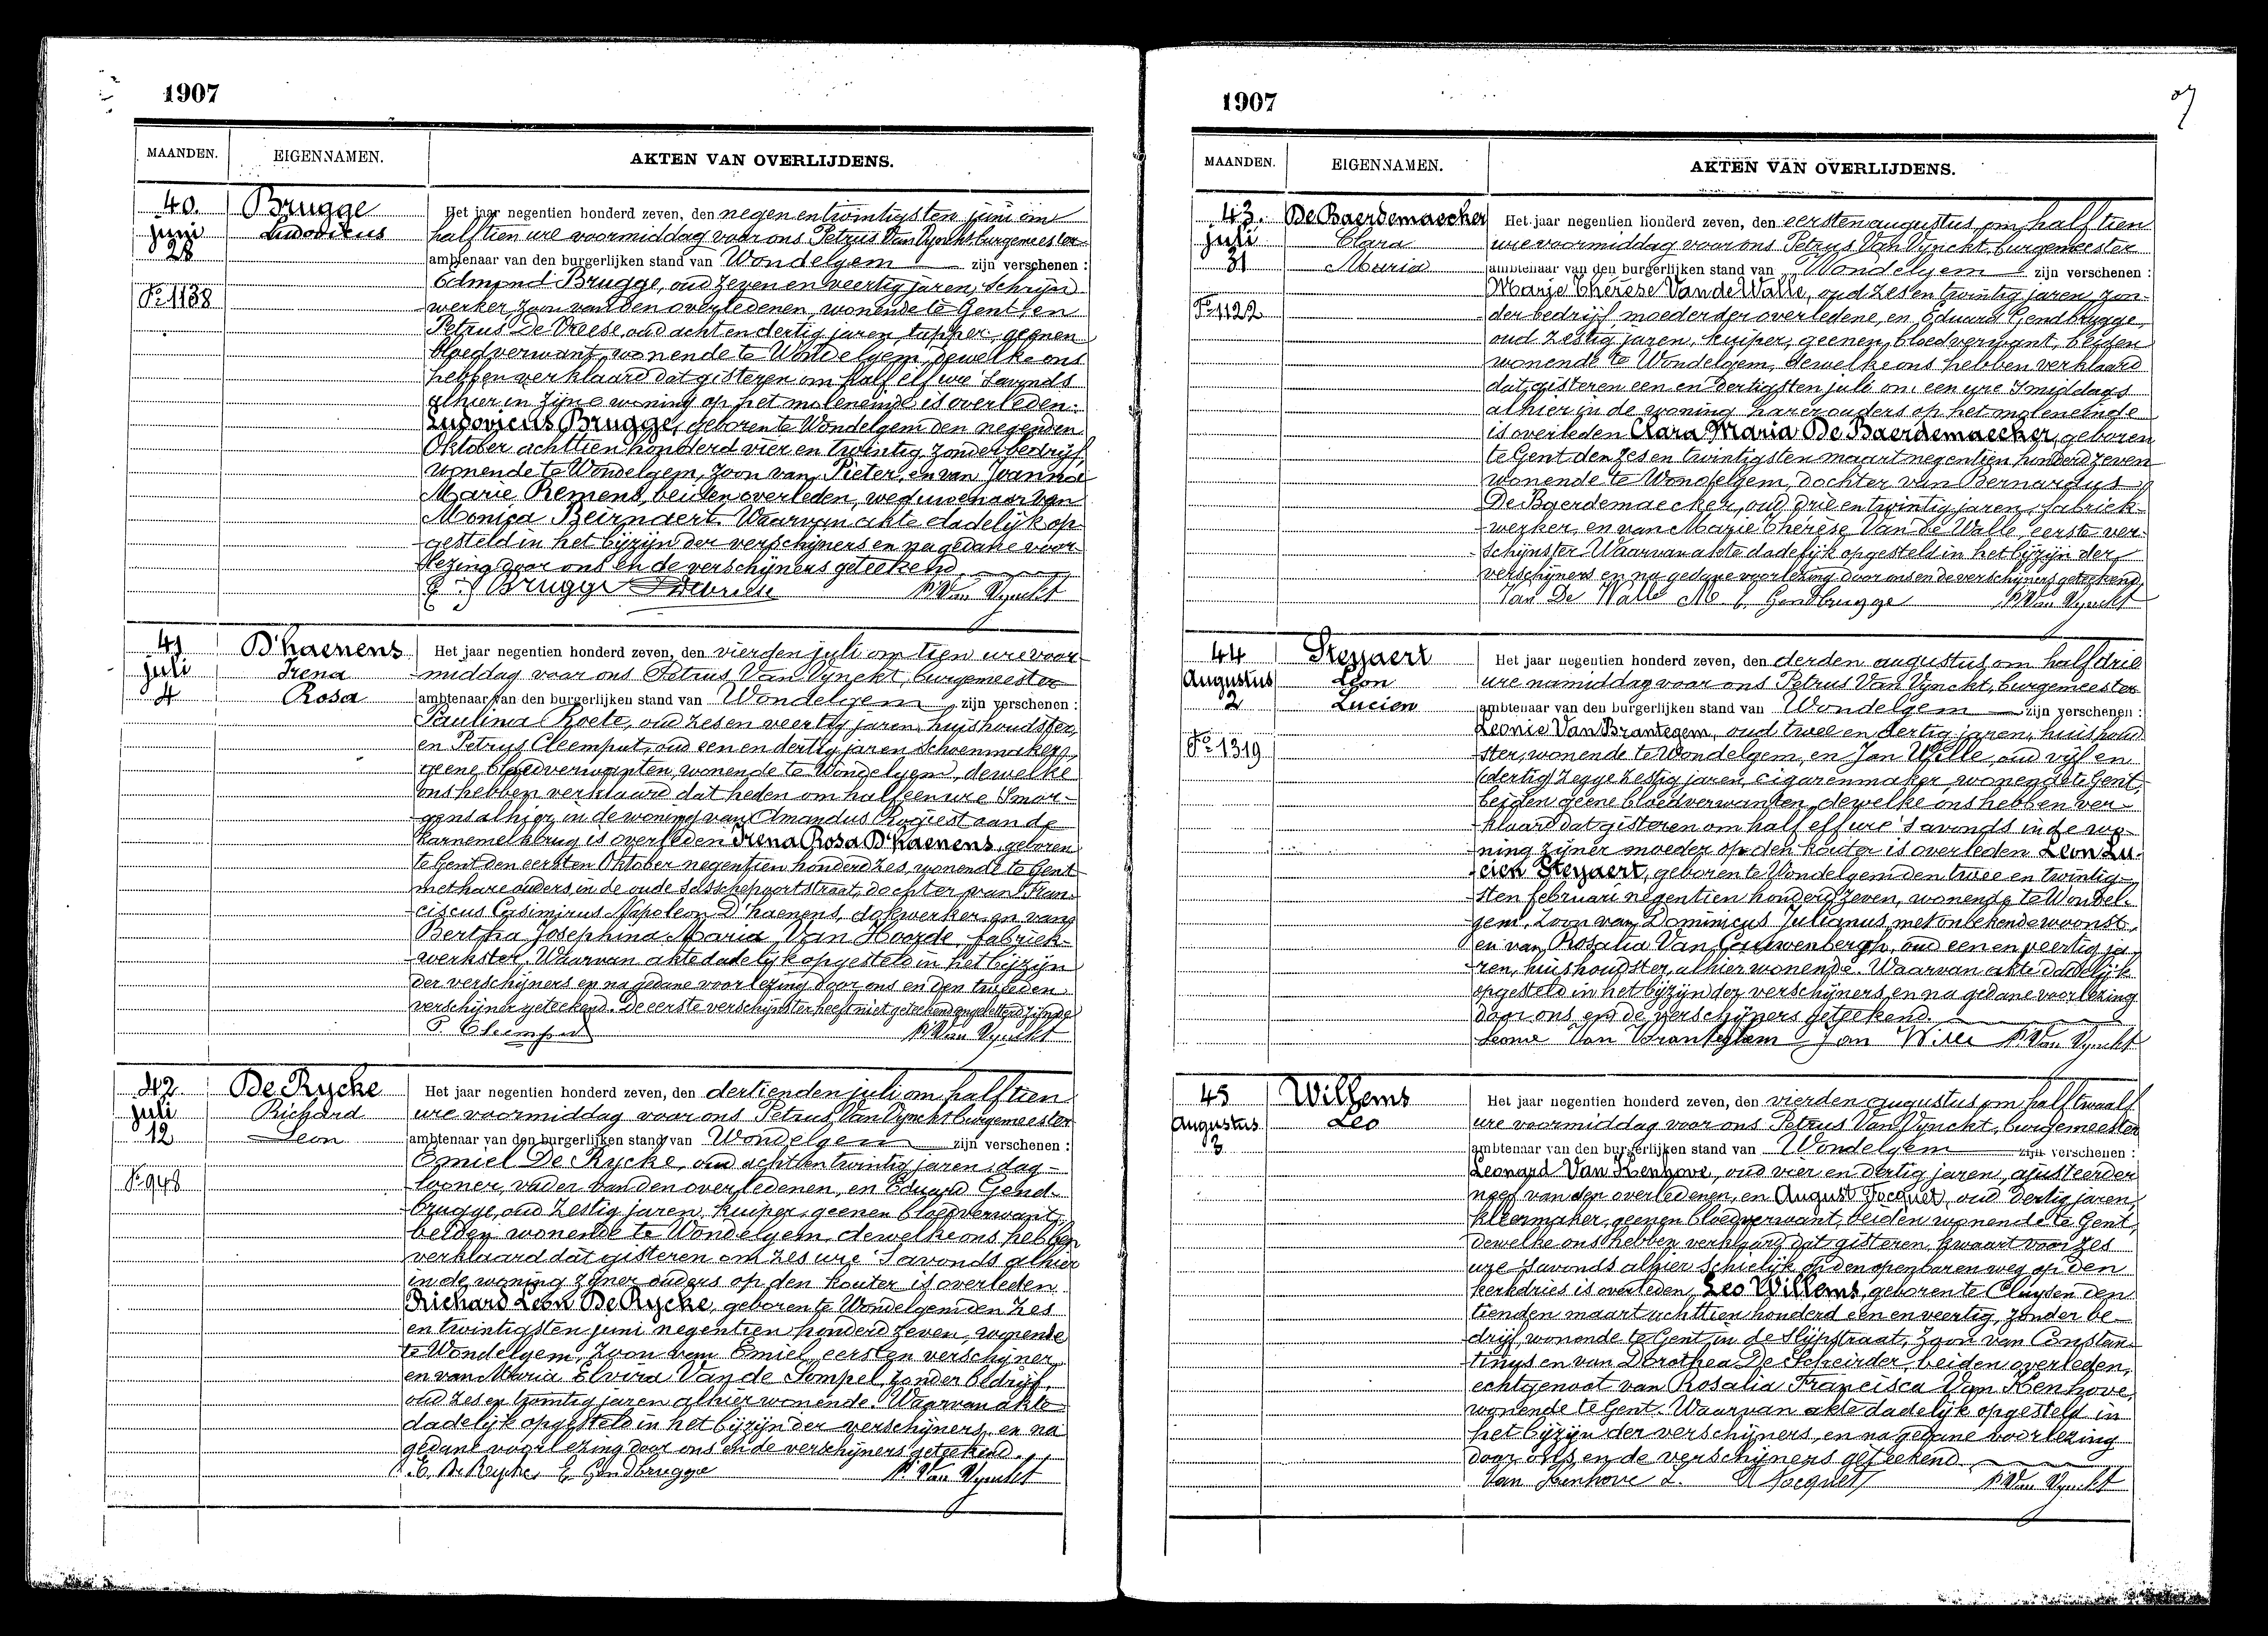 1907
MAANDEN. EIGENNAMEN. AKTEN VAN OVERLIJDENS.
40. Brugge Het jaar negentien honderd zeven, den negen en twintigsten juni om
juni Ludovicus half tien ure voormiddag voor ons Petrus Van Vynckt burgemeester
28 ambtenaar van den burgerlijken stand van Wondelgem zijn verschenen :
Edmond Brugge, oud zeven en veertig jaren, schrijn-
No 1138 werker zoon van den overledenen, wonende te Gent, en
Petrus De Vreese, oud acht en dertig jaren, tapper, geenen
bloedverwant, wonende te Wondelgem, dewelke ons
hebben verklaard dat gisteren om half elf ure 's avonds
alhier in zijne woning op het moleneinde is overleden:
Ludovicus Brugge, geboren te Wondelgem den negenden
Oktober achttien honderd vier en twintig, zonder bedrijf,
wonende te Wondelgem, zoon van Pieter, en van Joanna
Marie Remens, beiden overleden, weduwenaar van
Monica Beirnaert. Waarvan akte dadelijk op-
gesteld in het bijzijn der verschijners en na gedane voor-
lezing door ons en de verschijners geteekend
E. Brugge P. Van Vynckt
41 D'haenens Het jaar negentien honderd zeven, den vierden juli om tien ure voor-
juli Irena middag voor ons Petrus Van Vynckt, burgemeester
4 Rosa ambtenaar van den burgerlijken stand van Wondelgem zijn verschenen :
Paulina Roets, oud zes en veertig jaren, huishoudster,
en Petrus Cleemput, oud een en dertig jaren, schoenmaker,
geene bloedverwanten, wonende te Wondelgem, dewelke
ons hebben verklaard dat heden om half een ure 's mor-
gens alhier in de woning van Amandus Rogiest aan de
Karnemelkbrug is overleden Irena Rosa D'haenens, geboren
te Gent den eersten Oktober negentien honderd zes, wonende te Gent
met hare ouders, in de oude Sasschepoortstraat, dochter van Fran-
ciscus Casimirus Napoleon D'haenens, dokwerker en van
Bertha Josephina Maria Van Hoorde, fabriek-
werkster. Waarvan akte dadelijk opgesteld in het bijzijn
der verschijners en na gedane voorlezing door ons en den tweeden
verschijner geteekend. De eerste verschijnster heeft niet geteekend ongeletterd zijnde
P. Cleemput P. Van Vynckt
42 De Rycke Het jaar negentien honderd zeven, den dertienden juli om half tien
juli Richard ure voormiddag voor ons Petrus Van Vynckt burgemeester
12 Leon ambtenaar van den burgerlijken stand van Wondelgem zijn verschenen :
Emiel De Rycke, oud acht en twintig jaren, dag-
No 948 looner, vader van den overledenen, en Eduard Gend-
brugge, oud zestig jaren, kuiper, geenen bloedverwant,
beiden wonende te Wondelgem, dewelke ons hebben
verklaard dat gisteren om zes ure 's avonds alhier
in de woning zijner ouders op den kouter is overleden
Richard Leon De Rycke, geboren te Wondelgem den zes
en twintigsten juni negentien honderd zeven, wonende
te Wondelgem, zoon van Emiel, eersten verschijner,
en van Maria Elvira Van de Sompel, zonder bedrijf,
oud zes en twintig jaren alhier wonende. Waarvan akte
dadelijk opgesteld in het bijzijn der verschijners, en na
gedane voorlezing door ons en de verschijners geteekend.
E. De Rycke, E. Gendbrugge P. Van Vynckt
1907
MAANDEN. EIGENNAMEN. AKTEN VAN OVERLIJDENS.
43. De Baerdemaecker Het jaar negentien honderd zeven, den eersten augustus om half tien
juli Clara ure voormiddag voor ons Petrus Van Vynckt, burgemeester
31 Maria ambtenaar van den burgerlijken stand van Wondelgem zijn verschenen :
Marie Therèse Van de Walle, oud zes en twintig jaren, zon-
No 1122 der bedrijf, moeder der overledene, en Eduard Gendbrugge,
oud zestig jaren, kuiper, geenen bloedverwant, beiden
wonende te Wondelgem, dewelke ons hebben verklaard
dat gisteren een en dertigsten juli om een ure 's middags
alhier in de woning harer ouders op het moleneinde
is overleden Clara Maria De Baerdemaecker, geboren
te Gent den zes en twintigsten maart negentien honderd zeven
wonende te Wondelgem, dochter van Bernardus
De Baerdemaecker, oud drie en twintig jaren, fabriek-
werker, en van Marie Therèse Van de Walle, eerste ver-
schijnster. Waarvan akte dadelijk opgesteld in het bijzijn der
verschijners en na gedane voorlezing door ons en de verschijners geteekend,
Van De Walle M E. Gendbrugge P. Van Vynckt
44 Steyaert Het jaar negentien honderd zeven, den derden augustus om half drie
Augustus Leon ure namiddag voor ons Petrus Van Vynckt, burgemeester
2 Lucien ambtenaar van den burgerlijken stand van Wondelgem zijn verschenen :
Leonie Van Brantegem, oud twee en dertig jaren, huishoud-
No 1319 ster, wonende te Wondelgem, en Jan Wille, oud vijf en
(dertig) zegge zestig jaren, cigarenmaker, wonende te Gent,
beiden geene bloedverwanten, dewelke ons hebben ver-
klaard dat gisteren om half elf ure 's avonds in de wo-
ning zijner moeder op den kouter is overleden Leon Lu-
cien Steyaert, geboren te Wondelgem den twee en twintig-
sten februari negentien honderd zeven, wonende te Wondel-
gem, zoon van Dominicus Julianus, met onbekende woonst,
en van Rosalia Van Cauwenbergh, oud een en veertig ja-
ren, huishoudster, alhier wonende. Waarvan akte dadelijk
opgesteld in het bijzijn der verschijners, en na gedane voorlezing
door ons en de verschijners geteekend.
Leonie Van Branteghem Jan Wille P. Van Vynckt
45 Willems Het jaar negentien honderd zeven, den vierden augustus om half twaalf
Augustus Leo ure voormiddag voor ons Petrus Van Vynckt, burgemeester
3 ambtenaar van den burgerlijken stand van Wondelgem zijn verschenen :
Leonard Van Kenhove, oud vier en dertig jaren, ajusteerder
neef van den overledenen, en August Jocquet, oud dertig jaren,
kleermaker, geenen bloedverwant, beiden wonende te Gent,
dewelke ons hebben verklaard dat gisteren, kwaart voor zes
ure 's avonds alhier schielijk op den openbaren weg op den
kerkdries is overleden Leo Willems, geboren te Cluysen den
tienden maart achttien honderd een en veertig, zonder be-
drijf, wonende te Gent, in de Slijpstraat, zoon van Constan-
tinus en van Dorothea De Scheirder, beiden overleden,
echtgenoot van Rosalia Francisca Van Kenhove,
wonende te Gent. Waarvan akte dadelijk opgesteld in
het bijzijn der verschijners, en na gedane voorlezing
door ons en de verschijners geteekend
Van Kenhove L. A Jocquet P. Van Vynckt